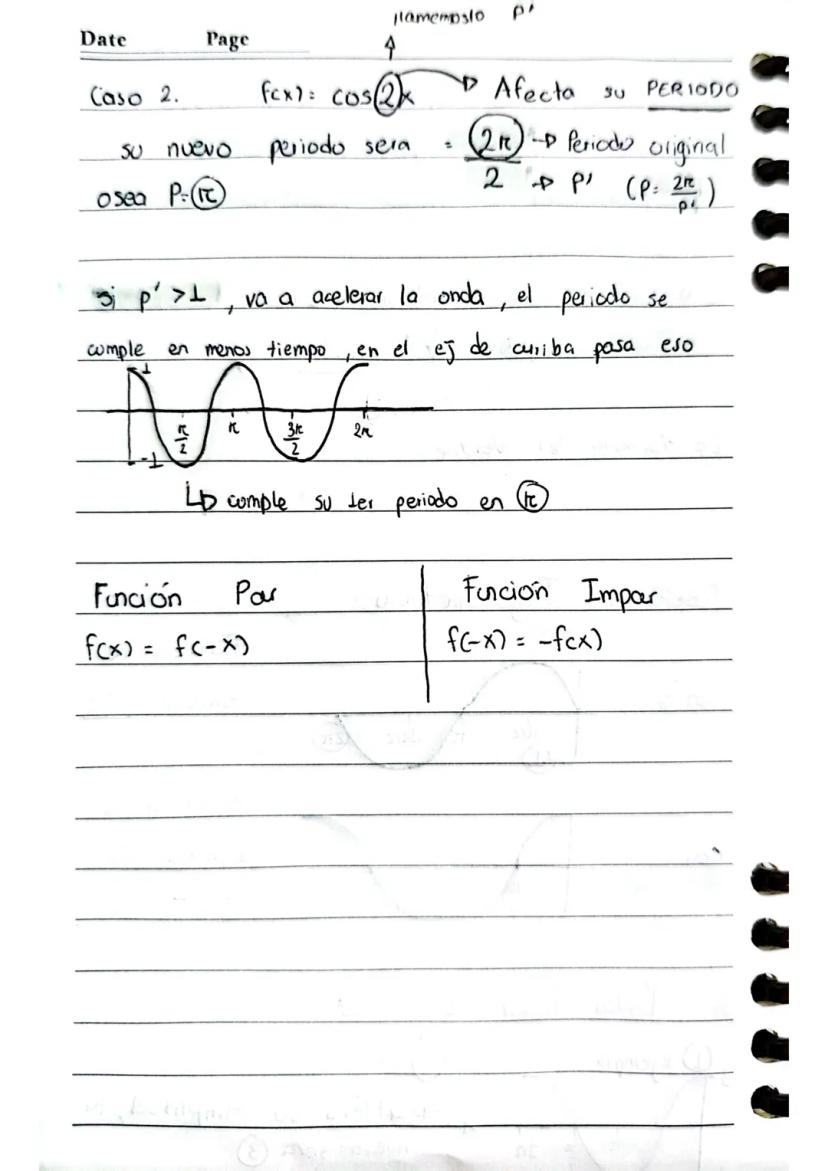 llamemoslo p'
Date Page
Caso 2. f(x) = cos 2x → Afecta su PERIODO
su nuevo periodo sera = 2π → Periodo original
2 → P' (P = 2π/p')
osea P=π
si p' >1, va a acelerar la onda, el periodo se
cumple en menos tiempo, en el ej de arriba pasa eso
1
π/2 π 3π/2 2π
-1
↳ cumple su 1er periodo en π
Función Par
f(x) = f(-x)
Función Impar
f(-x) = -f(x)